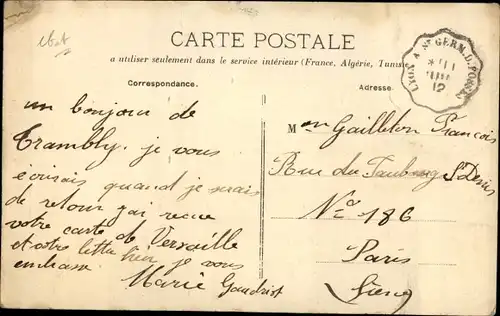 CARTE POSTALE
a utiliser seulement dans le service intérieur (France, Algérie, Tunisie
Correspondance.
Adresse
LYON A ST GERM. D. FOSSÉS
12
un bonjour de
Trambly. je vous
écrirais quand je serais
de retour j'ai recue
votre carte de Versaille
et votre lettre hier je vous
embrasse
Marie Gaudrist
Mon Gailleton François
Rue du Faubourg St Denis
No 186
Paris
Seine